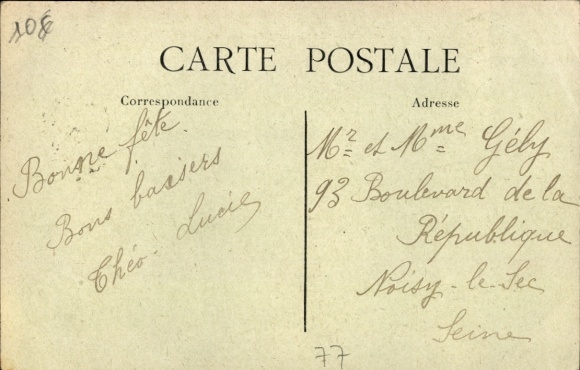 10€
CARTE POSTALE
Correspondance
Bonne fête.
Bons baisers
Théo - Lucie
Adresse
Mr et Mme Gély
93 Boulevard de la
République
Noisy-le-Sec
Seine
77